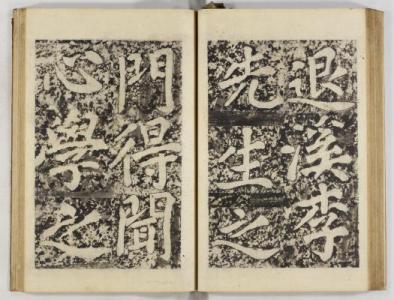 退溪李
先生之
門得聞
心學之